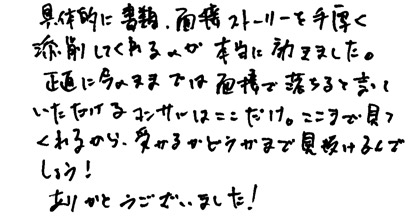 具体的に書類、面接ストーリーを手厚く
添削してくれるのが本当に効きました。
正直に今のままでは面接で落ちると言って
いただけるコンサルはここだけ。ここまで見て
くれるから、受かるかどうかまで見抜けるんで
しょう!
ありがとうございました!